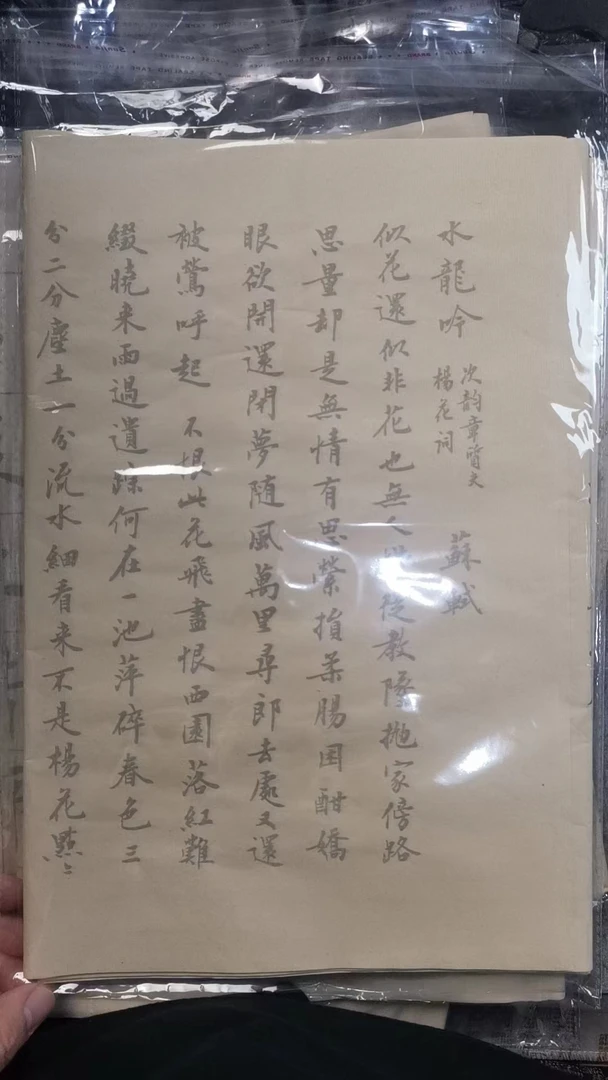 水龍吟 次韵章質夫楊花词 蘇軾
似花還似非花也無人從教墜抛家傍路
思量却是無情有思縈損柔腸困酣嬌
眼欲開還閉夢随風萬里尋郎去處又還
被鶯呼起 不恨此花飛盡恨西園落紅難
綴曉来雨過遺踪何在一池萍碎春色三
分二分塵土一分流水細看来不是楊花點〻